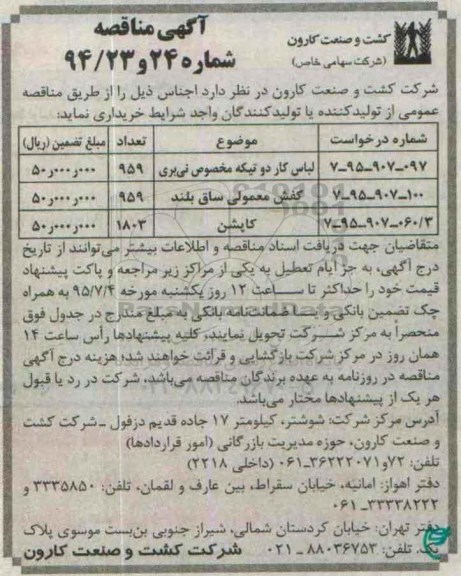 کشت و صنعت کارون
(شرکت سهامی خاص)
آگهی مناقصه
شماره ۲۴ و ۹۴/۲۳
شرکت کشت و صنعت کارون در نظر دارد اجناس ذیل را از طریق مناقصه
عمومی از تولیدکننده یا تولیدکنندگان واجد شرایط خریداری نماید:
شماره درخواست موضوع تعداد مبلغ تضمین (ریال)
۷-۹۵-۹۰۷-۰۹۷ لباس کار دو تیکه مخصوص نی‌بری ۹۵۹ ۵۰ر۰۰۰ر۰۰۰
۷-۹۵-۹۰۷-۱۰۰ کفش معمولی ساق بلند ۹۵۹ ۵۰ر۰۰۰ر۰۰۰
۷-۹۵-۹۰۷-۰۶۰/۳ کاپشن ۱۸۰۳ ۵۰ر۰۰۰ر۰۰۰
متقاضیان جهت دریافت اسناد مناقصه و اطلاعات بیشتر می‌توانند از تاریخ
درج آگهی، به جز ایام تعطیل به یکی از مراکز زیر مراجعه و پاکت پیشنهاد
قیمت خود را حداکثر تا ساعت ۱۲ روز یکشنبه مورخه ۹۵/۷/۴ به همراه
چک تضمین بانکی و یا ضمانت‌نامه بانکی به مبلغ مندرج در جدول فوق
منحصراً به مرکز شرکت تحویل نمایند، کلیه پیشنهادها رأس ساعت ۱۴
همان روز در مرکز شرکت بازگشایی و قرائت خواهند شد؛ هزینه درج آگهی
مناقصه در روزنامه به عهده برندگان مناقصه می‌باشد، شرکت در رد یا قبول
هر یک از پیشنهادها مختار می‌باشد.
آدرس مرکز شرکت: شوشتر، کیلومتر ۱۷ جاده قدیم دزفول - شرکت کشت
و صنعت کارون، حوزه مدیریت بازرگانی (امور قراردادها)
تلفن: ۷۲ و ۳۶۲۲۲۰۷۱-۰۶۱ (داخلی ۲۲۱۸)
دفتر اهواز: امانیه، خیابان سقراط، بین عارف و لقمان، تلفن: ۳۳۳۵۸۵۰ و
۳۳۳۳۸۲۲۲-۰۶۱
دفتر تهران: خیابان کردستان شمالی، شیراز جنوبی بن‌بست موسوی پلاک
یک. تلفن: ۸۸۰۳۶۷۵۳ - ۰۲۱ شرکت کشت و صنعت کارون